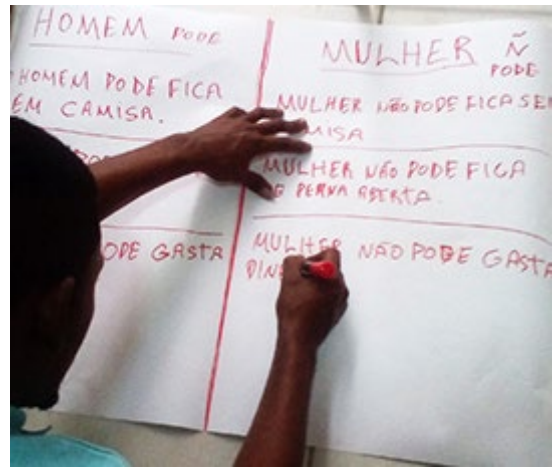 HOMEM PODE
HOMEM PODE FICA
EM CAMISA.
ODE GASTA
MULHER Ñ
PODE
MULHER NÃO PODE FICA SEM
MISA
MULHER NÃO PODE FICA
PERNA ABERTA.
MULHER NÃO PODE GASTA
DIN